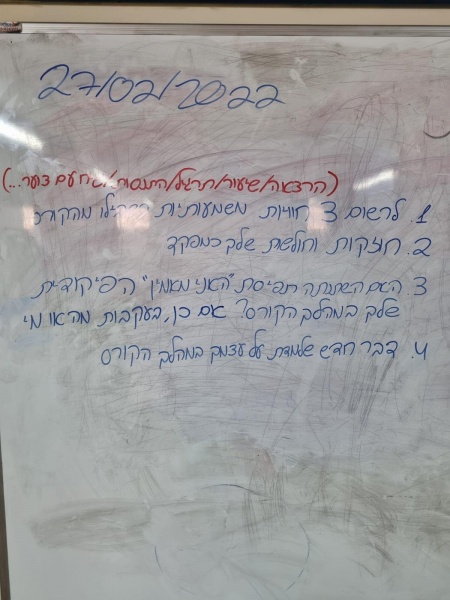 27/02/2022
(הרצאה/שיעור/תרגיל/התנסות/שיח עם צוער...)
1. לרשום 3 חוויות משמעותיות מהקורס
2. חוזקות וחולשות שלך כמפקד
3. האם השתנתה תפיסת "האני מאמין" הפיקודית
שלך במהלך הקורס? אם כן, בעקבות מה או מי
4. דבר חדש שלמדת על עצמך במהלך הקורס